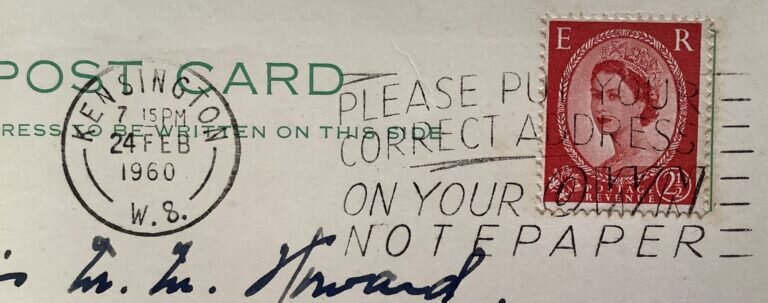 POST CARD
KENSINGTON
7 15 PM
24 FEB
1960
W. 8.
RESS TO BE WRITTEN ON THIS SIDE
PLEASE PUT YOUR
CORRECT ADDRESS
ON YOUR OWN
NOTEPAPER
E R
POSTAGE
REVENUE
2½
M. M. Howard.